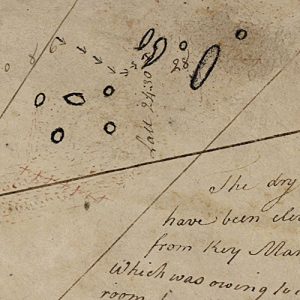 28
Latt 24:30
The dry
have been
from Key Mar
which was owing to
room